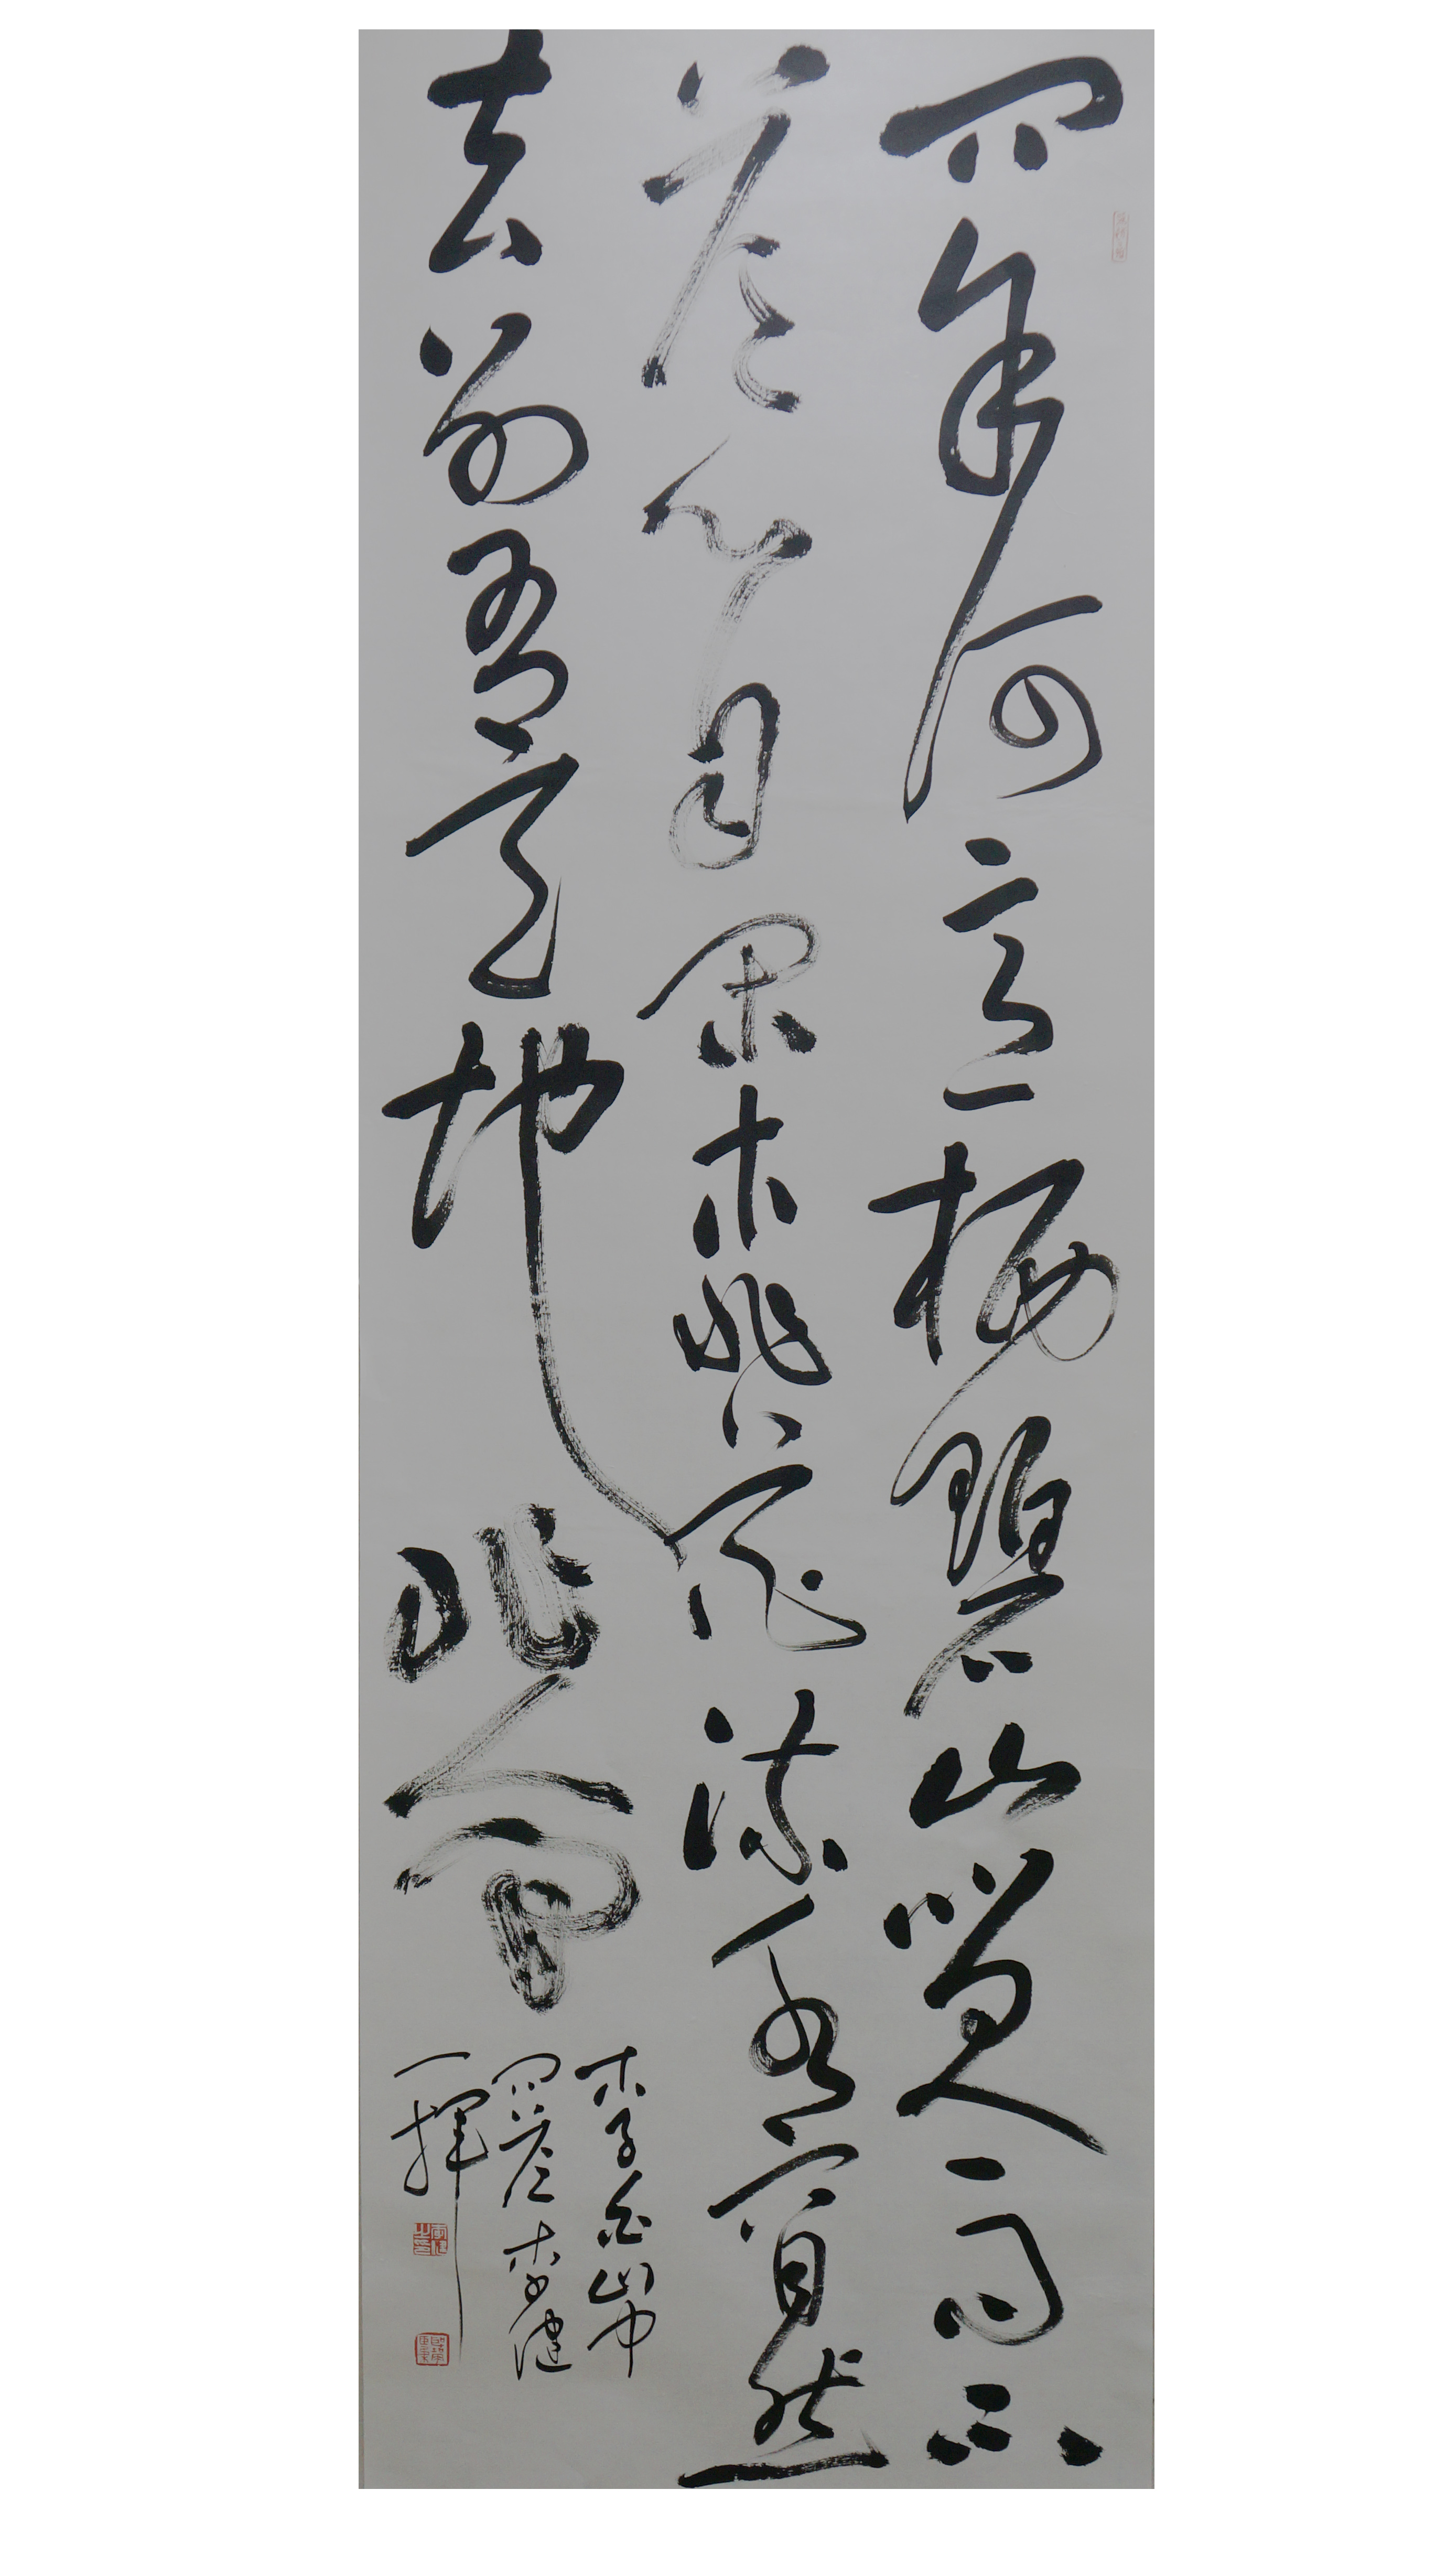 問余何意栖碧山笑而不
答心自閑桃花流水窅然
去別有天地非人間
李白山中
問答李健
一揮